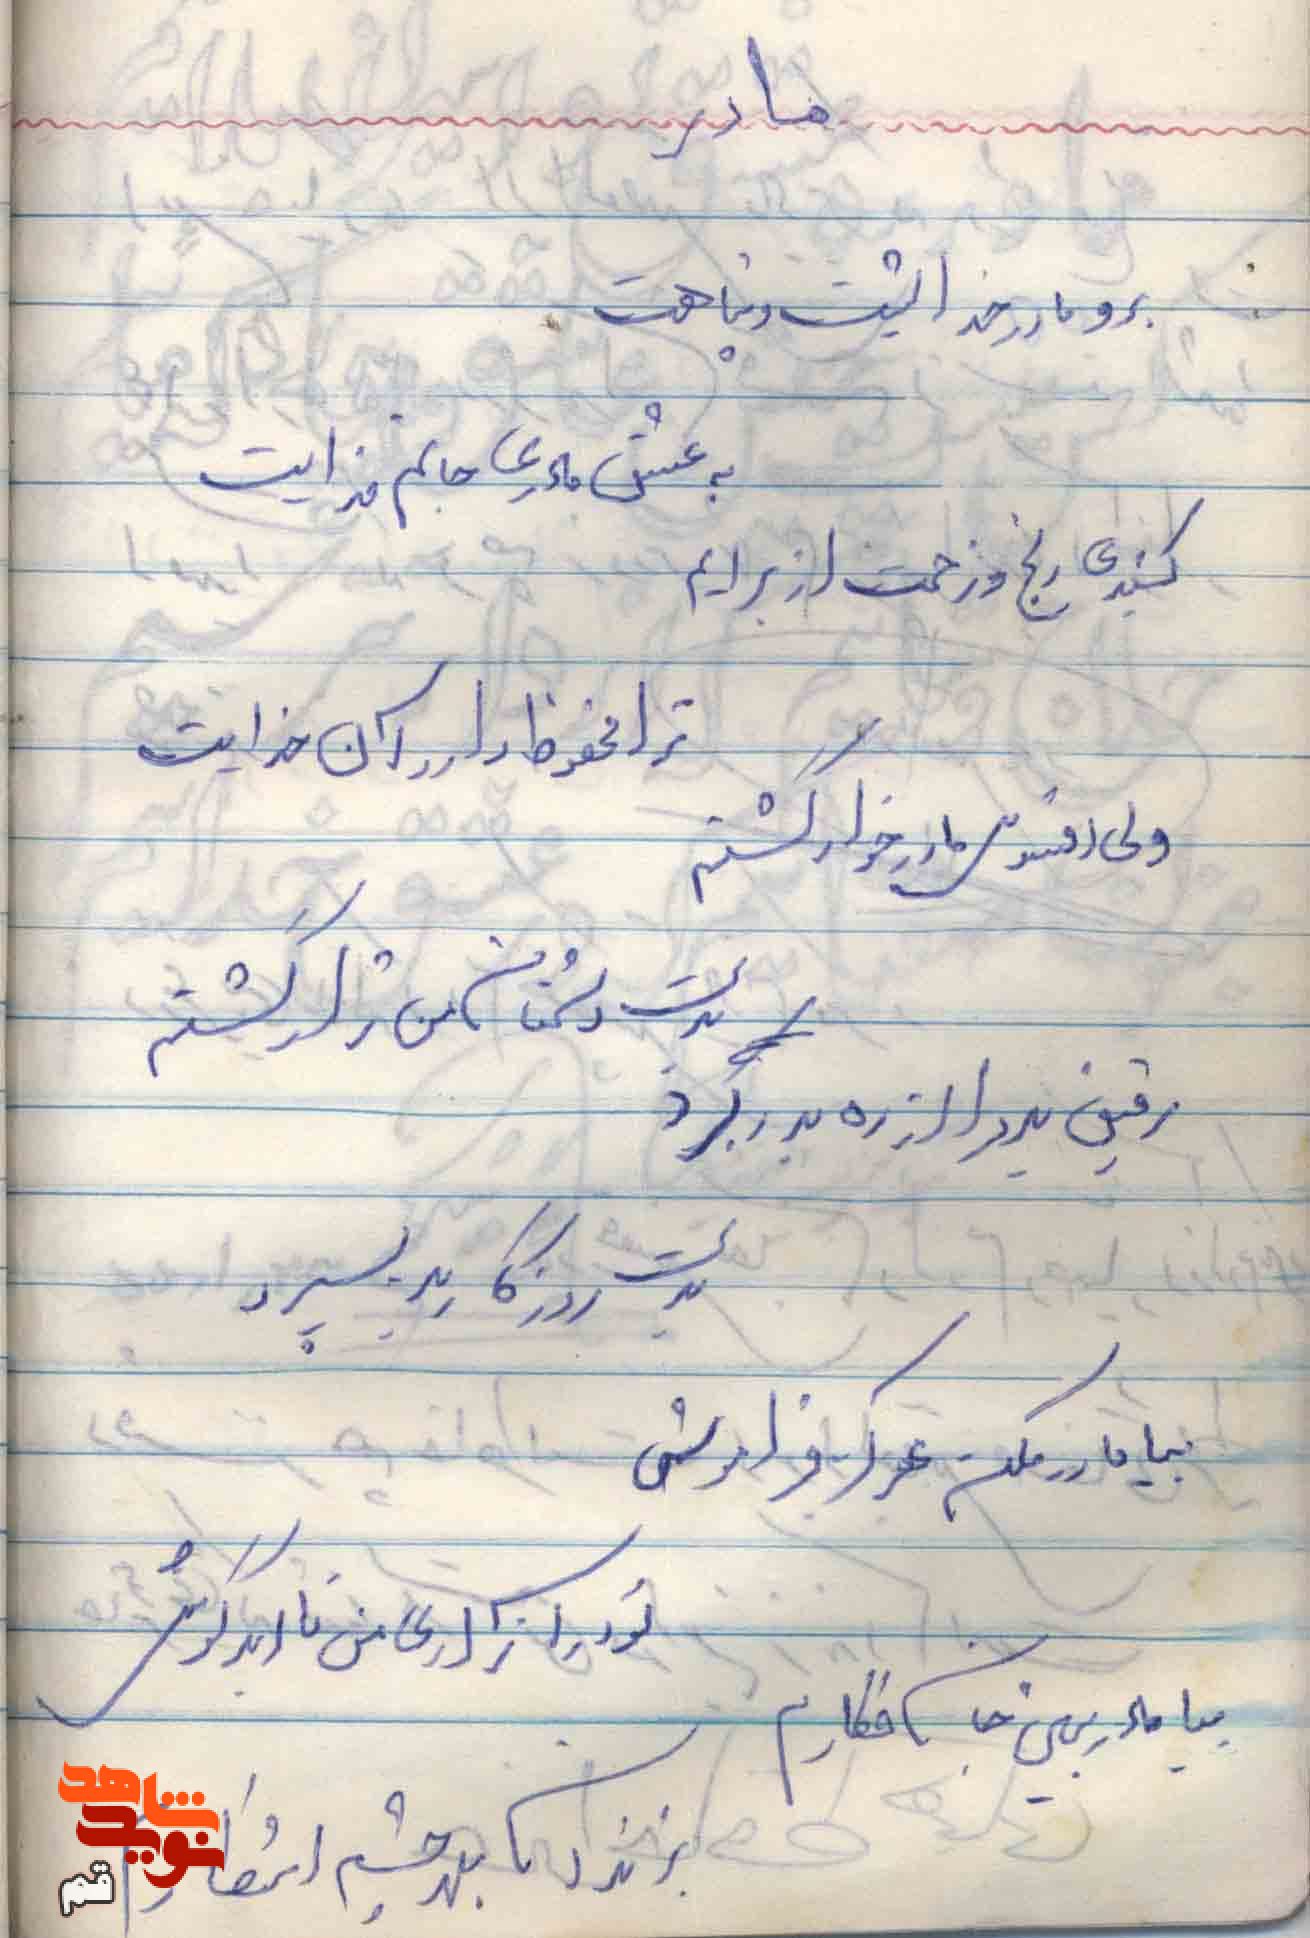 مادر
برو مادر خدا پشت و پناهت
به عشق مادری جانم فدایت
کشیدی رنج و زحمت از برایم
ترا محفوظ دارد آن خدایت
ولی افسوس مادر خوار گشتم
بدست دشمنان من زار گشتم
رفیق بد مرا از ره بدر کرد
بدست روزگار بد بسپرد
بیا مادر مکن هرگز فراموش
تو دیدار از من تا ابد گوش
بیا مادر ببین جان فکارم
بزندان بهر چشم انتظارم
نوید شاهد
قم